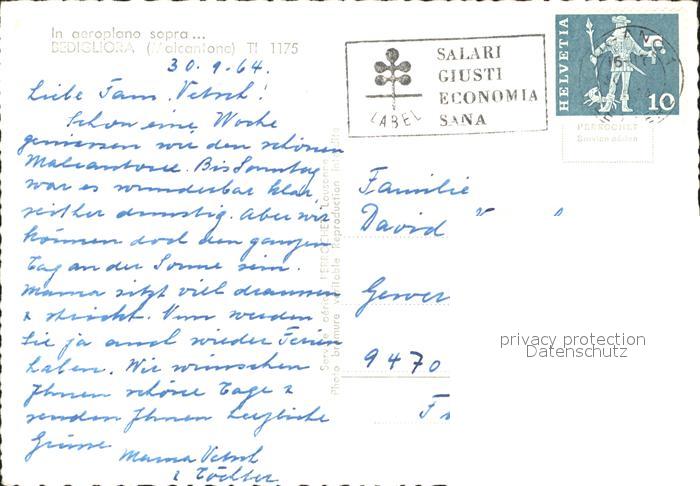 In aeroplano sopra...
BEDIGLIORA (Malcantone) TI 1175
30.9.64.
Liebe Fam. Vetsch!
Schon eine Woche
geniessen wir den schönen
Malcantone. Bis Sonntag
war es wunderbar klar,
seither dunstig. Aber wir
können doch den ganzen
Tag an der Sonne sein.
Mama sitzt viel draussen
& strickt. Nun werden
Sie ja auch wieder Ferien
haben. Wir wünschen
Ihnen schöne Tage &
senden Ihnen herzliche
Grüsse
Mama Vetsch
& Töchter
LABEL
SALARI
GIUSTI
ECONOMIA
SANA
HELVETIA
10
PERROCHET
Service aérien
Familie
David
9470
privacy protection
Datenschutz